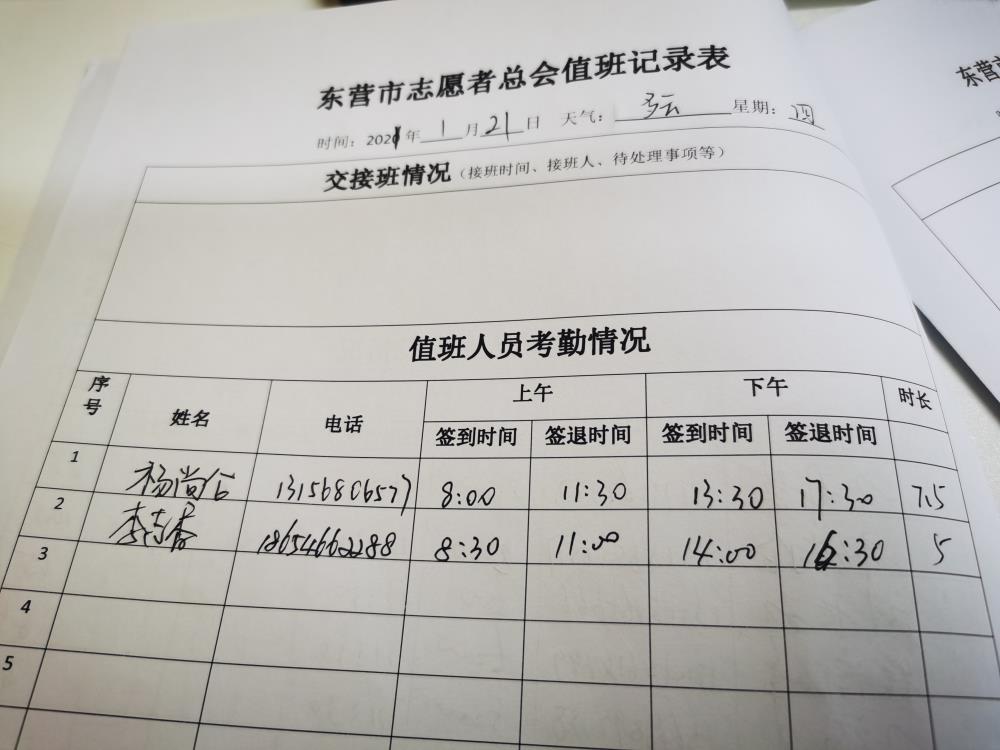 东营市志愿者总会值班记录表
时间：2021年 1 月 21 日 天气： 多云 星期： 四
交接班情况（接班时间、接班人、待处理事项等）
值班人员考勤情况
序号 姓名 电话 上午 下午 时长
签到时间 签退时间 签到时间 签退时间
1 杨尚 13156806577 8:00 11:30 13:30 17:30 7.5
2 李 香 18654662288 8:30 11:00 14:00 16:30 5
3
4
5
东营市